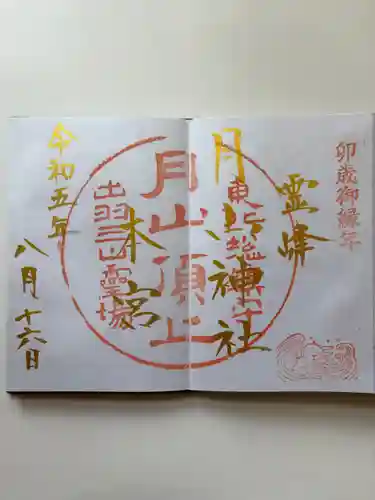 卯歳御縁年
霊峰
月山神社
東北総鎮守
月山頂上
本宮
出羽三山霊場
令和五年
八月十六日